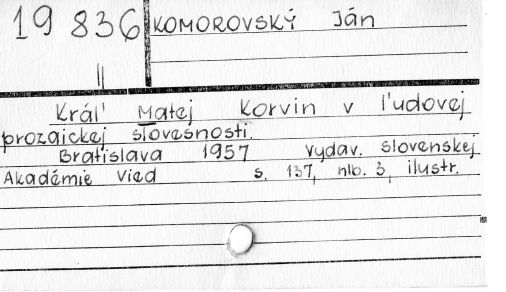 19 836 KOMOROVSKÝ Ján
II
Kráľ Matej Korvin v ľudovej
prozaickej slovesnosti.
Bratislava 1957 vydav. slovenskej
Akadémie vied s. 137, nlb. 3, ilustr.